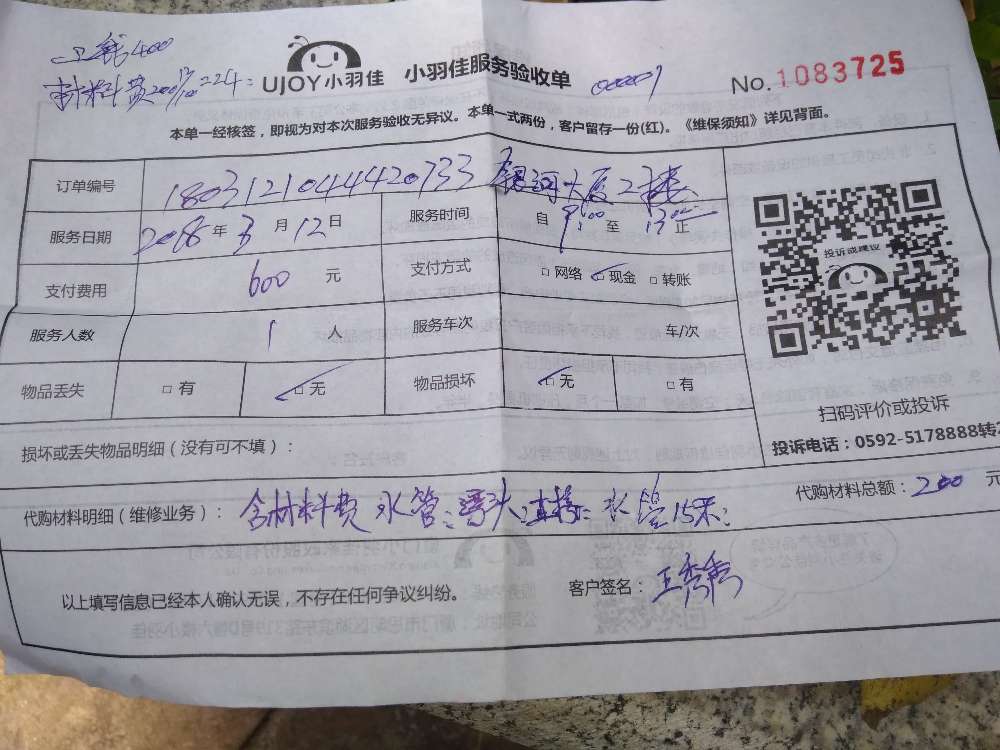 工钱400
材料费200
UJOY小羽佳 小羽佳服务验收单 00009
No. 1083725
本单一经核签，即视为对本次服务验收无异议。本单一式两份，客户留存一份(红)。《维保须知》详见背面。
订单编号 1803121044420733 银河大厦2楼
服务日期 2018年3月12日 服务时间 自9:00至13:00止
投诉或建议
支付费用 600元 支付方式 □网络 ☑现金 □转账
服务人数 1人 服务车次 车/次
物品丢失 □有 ☑无 物品损坏 ☑无 □有
扫码评价或投诉
投诉电话：0592-5178888转2
损坏或丢失物品明细（没有可不填）：
代购材料总额：200元
代购材料明细（维修业务）： 含材料费 水管、弯头、直接、水管15米
以上填写信息已经本人确认无误，不存在任何争议纠纷。
客户签名：王秀秀